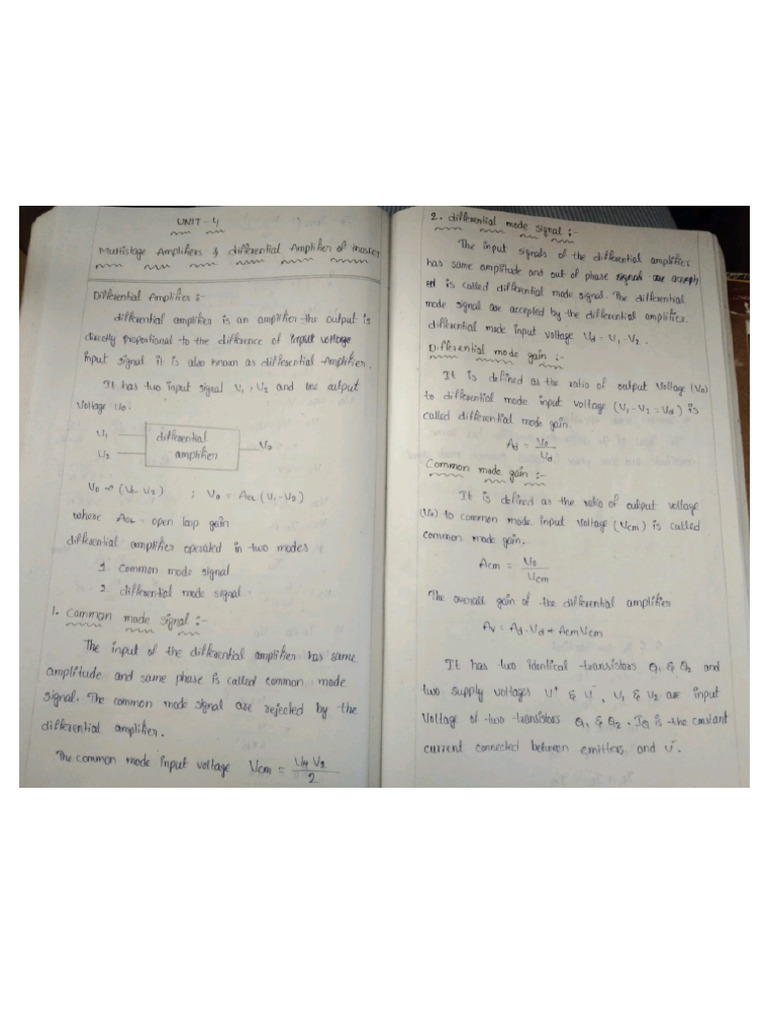 UNIT-4
Multistage Amplifiers & differential Amplifier of
Differential Amplifier :-
differential amplifier is an amplifier the output is
directly proportional to the difference of input voltage
input signal it is also known as differential Amplifier.
It has two input signal V₁, V₂ and one output
voltage V₀.
V₁
differential
amplifier
V₂
V₀ (V₁-V₂) ; V₀ = AOL (V₁-V₂)
where AOL = open loop gain
differential amplifier operated in two modes
1. Common mode signal
2. differential mode signal
1. Common mode signal :-
The input of the differential amplifier has same
amplitude and same phase is called common mode
signal. The common mode signal are rejected by the
differential amplifier.
The common mode input voltage Vcm = V₁+V₂/2
2. differential mode signal :-
The input signals of the differential amplifier
has same amplitude and out of phase signals are accept
ed is called differential mode signal. The differential
mode signal are accepted by the differential amplifier.
differential mode input voltage Vd = V₁-V₂.
Differential mode gain :-
It is defined as the ratio of output voltage (V₀)
to differential mode input voltage (V₁-V₂ = Vd) is
called differential mode gain.
Ad = V₀/Vd
Common mode gain :-
It is defined as the ratio of output voltage
(V₀) to common mode input voltage (Vcm) is called
common mode gain.
Acm = V₀/Vcm
The overall gain of the differential amplifier
Av = Ad·Vd + Acm Vcm
It has two identical transistors Q₁ & Q₂ and
two supply voltages V⁺ & V⁻, V₁ & V₂ are input
voltage of two transistors Q₁ & Q₂. IQ is the constant
current connected between emitters and V⁻.